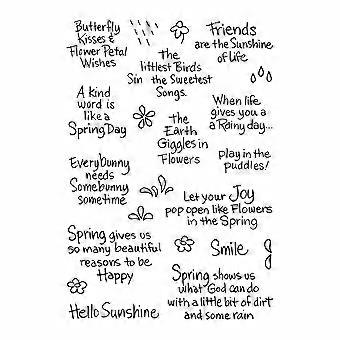 Butterfly
Kisses &
Flower Petal
Wishes
Friends
are the Sunshine
of Life
The
littlest Birds
Sin the Sweetest
Songs.
A kind
word is
like a
Spring Day
When life
gives you a
a Rainy day...
The
Earth
Giggles in
Flowers
Play in the
puddles!
Everybunny
needs
Somebunny
sometime
Let your Joy
pop open like Flowers
in the Spring
Spring gives us
so many beautiful
reasons to be
Happy
Smile
Spring shows us
what God can do
with a little bit of dirt
and some rain
Hello Sunshine